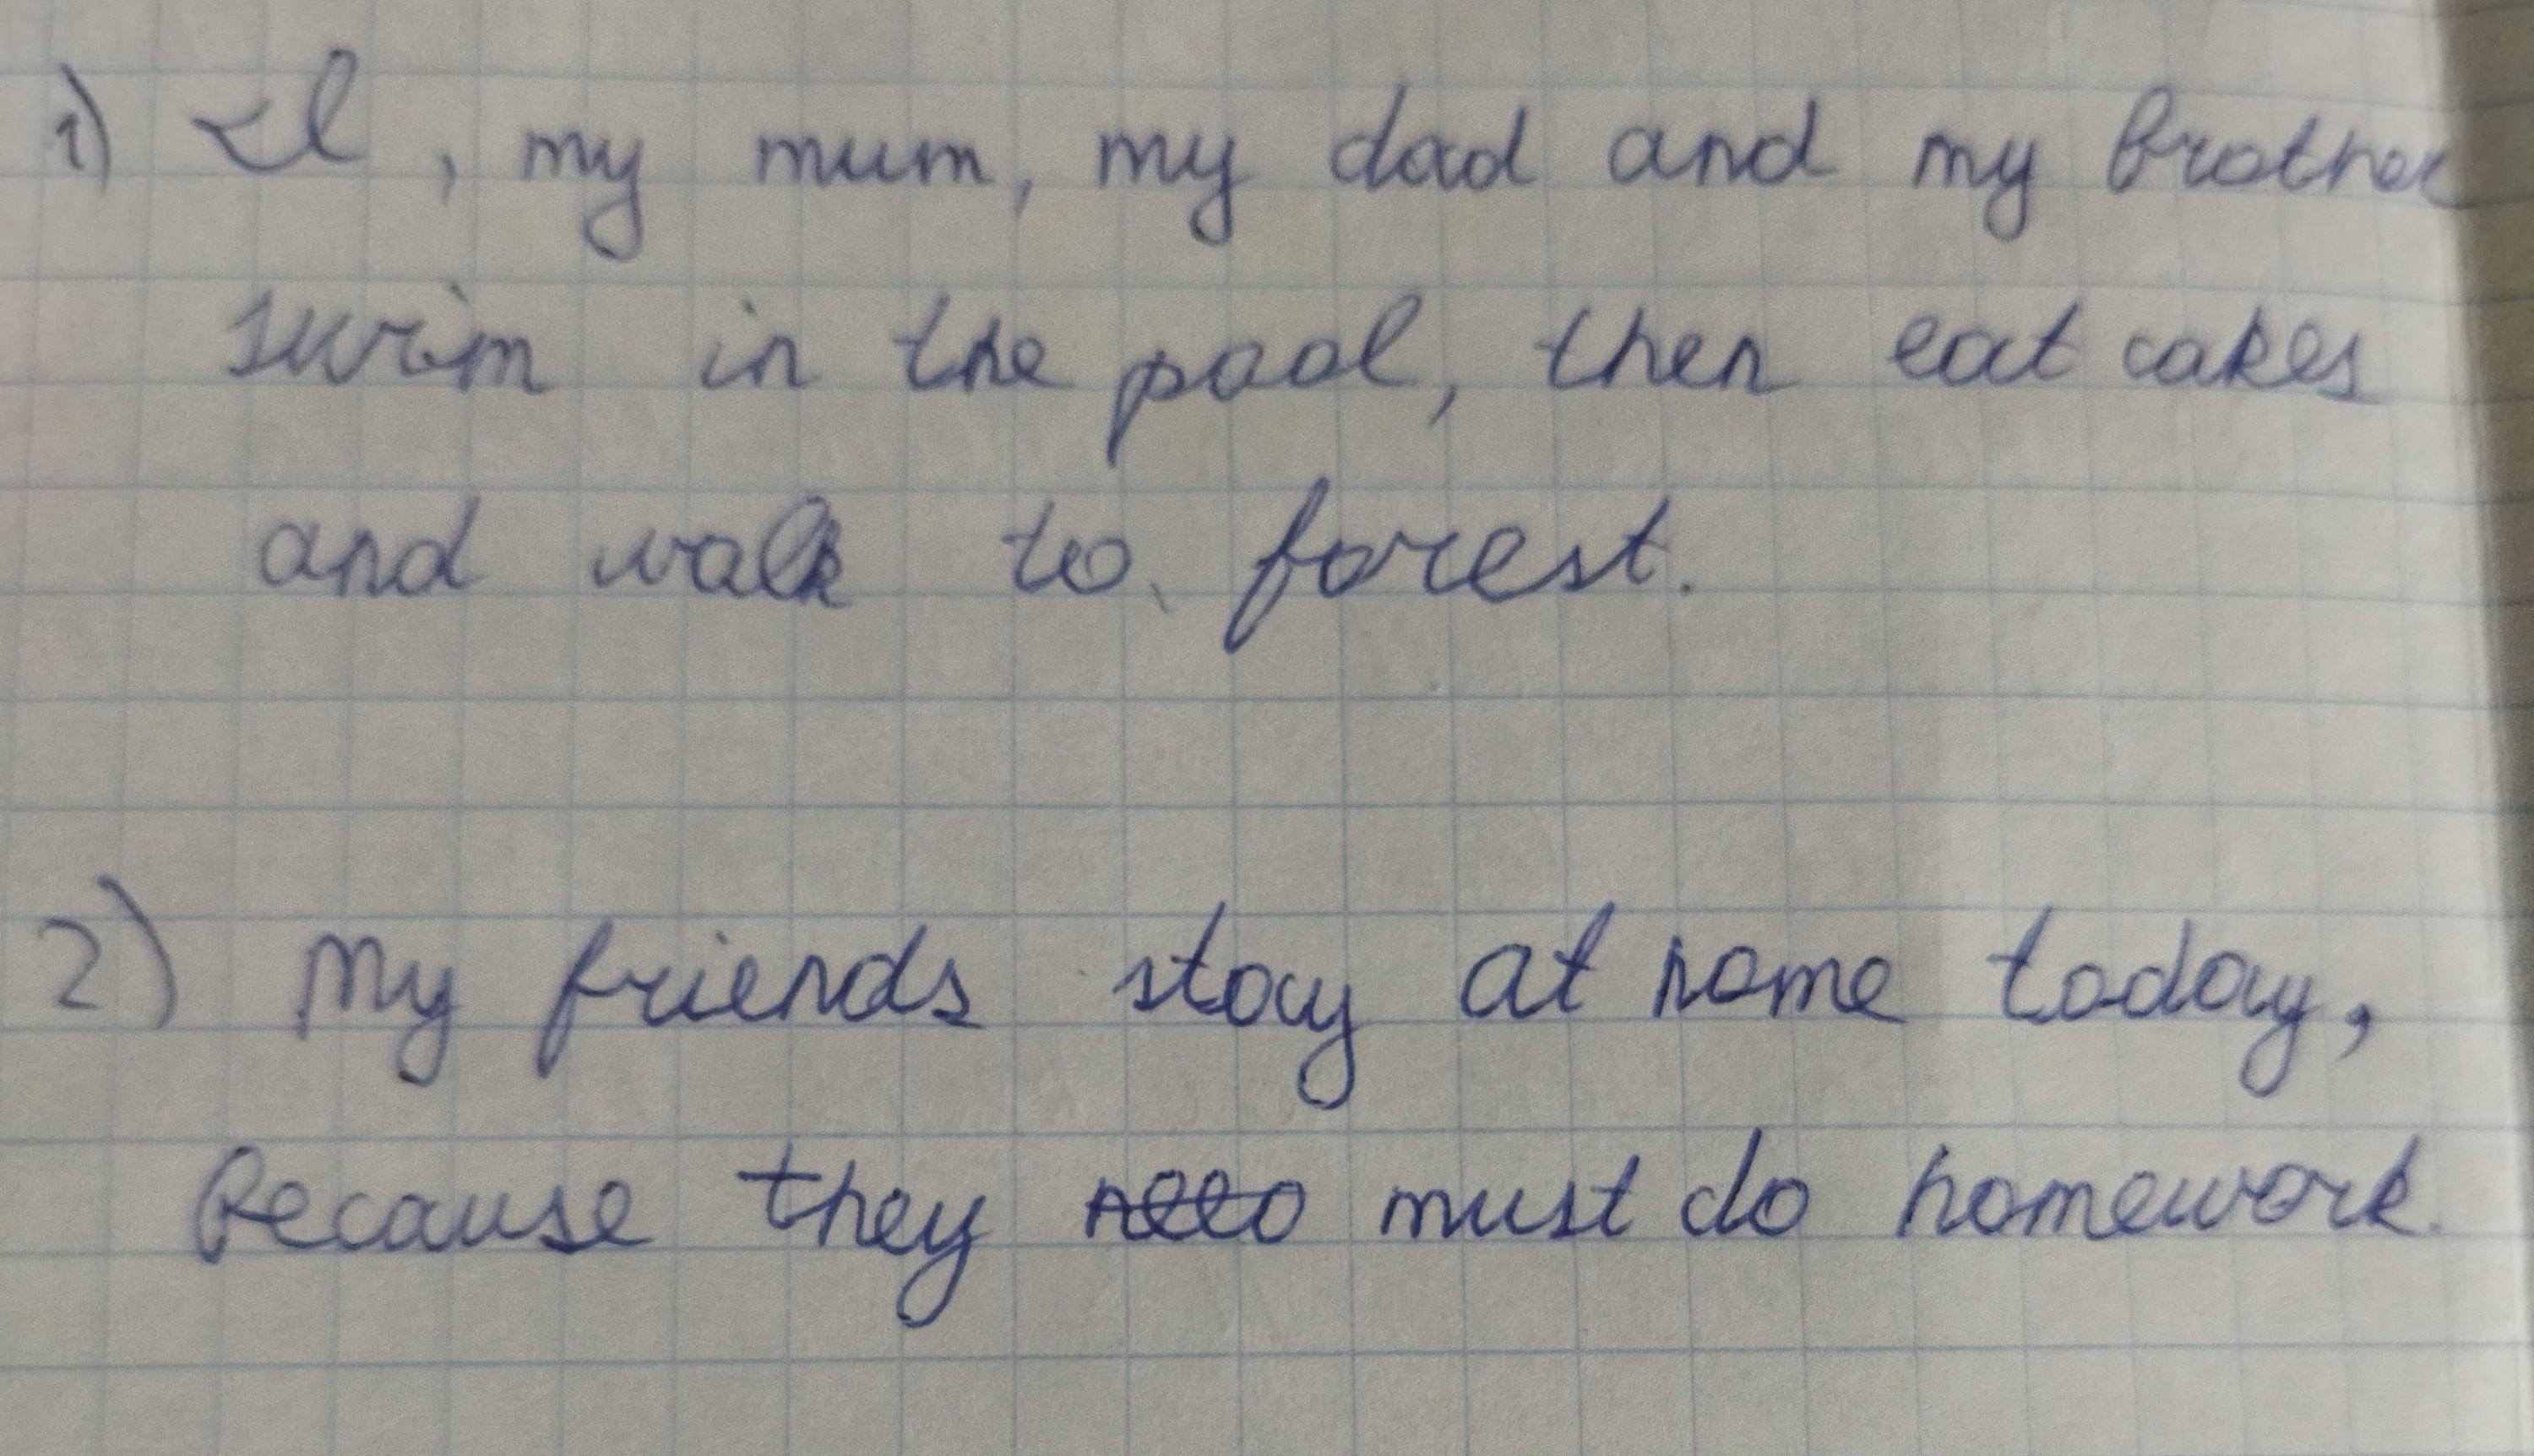 1) I, my mum, my dad and my brother
swim in the pool, then eat cakes
and walk to forest.
2) My friends stay at home today,
because they must do homework.